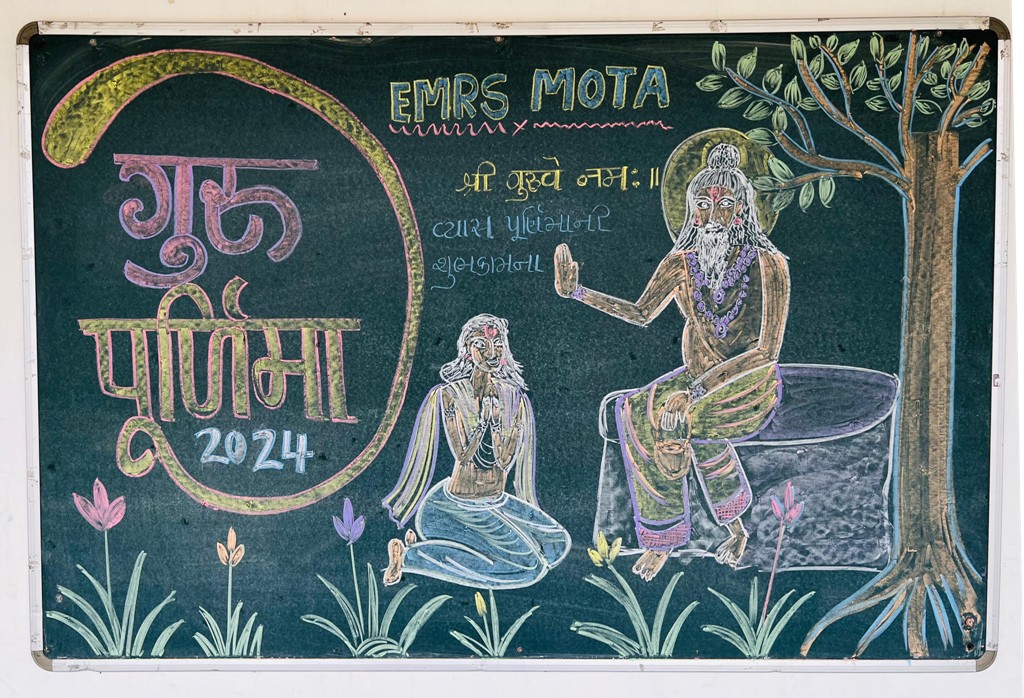 गुरु
पूर्णिमा
2024
EMRS MOTA
श्री गुरुवे नमः॥
વ્યાસ પૂર્ણિમાની
શુભકામના